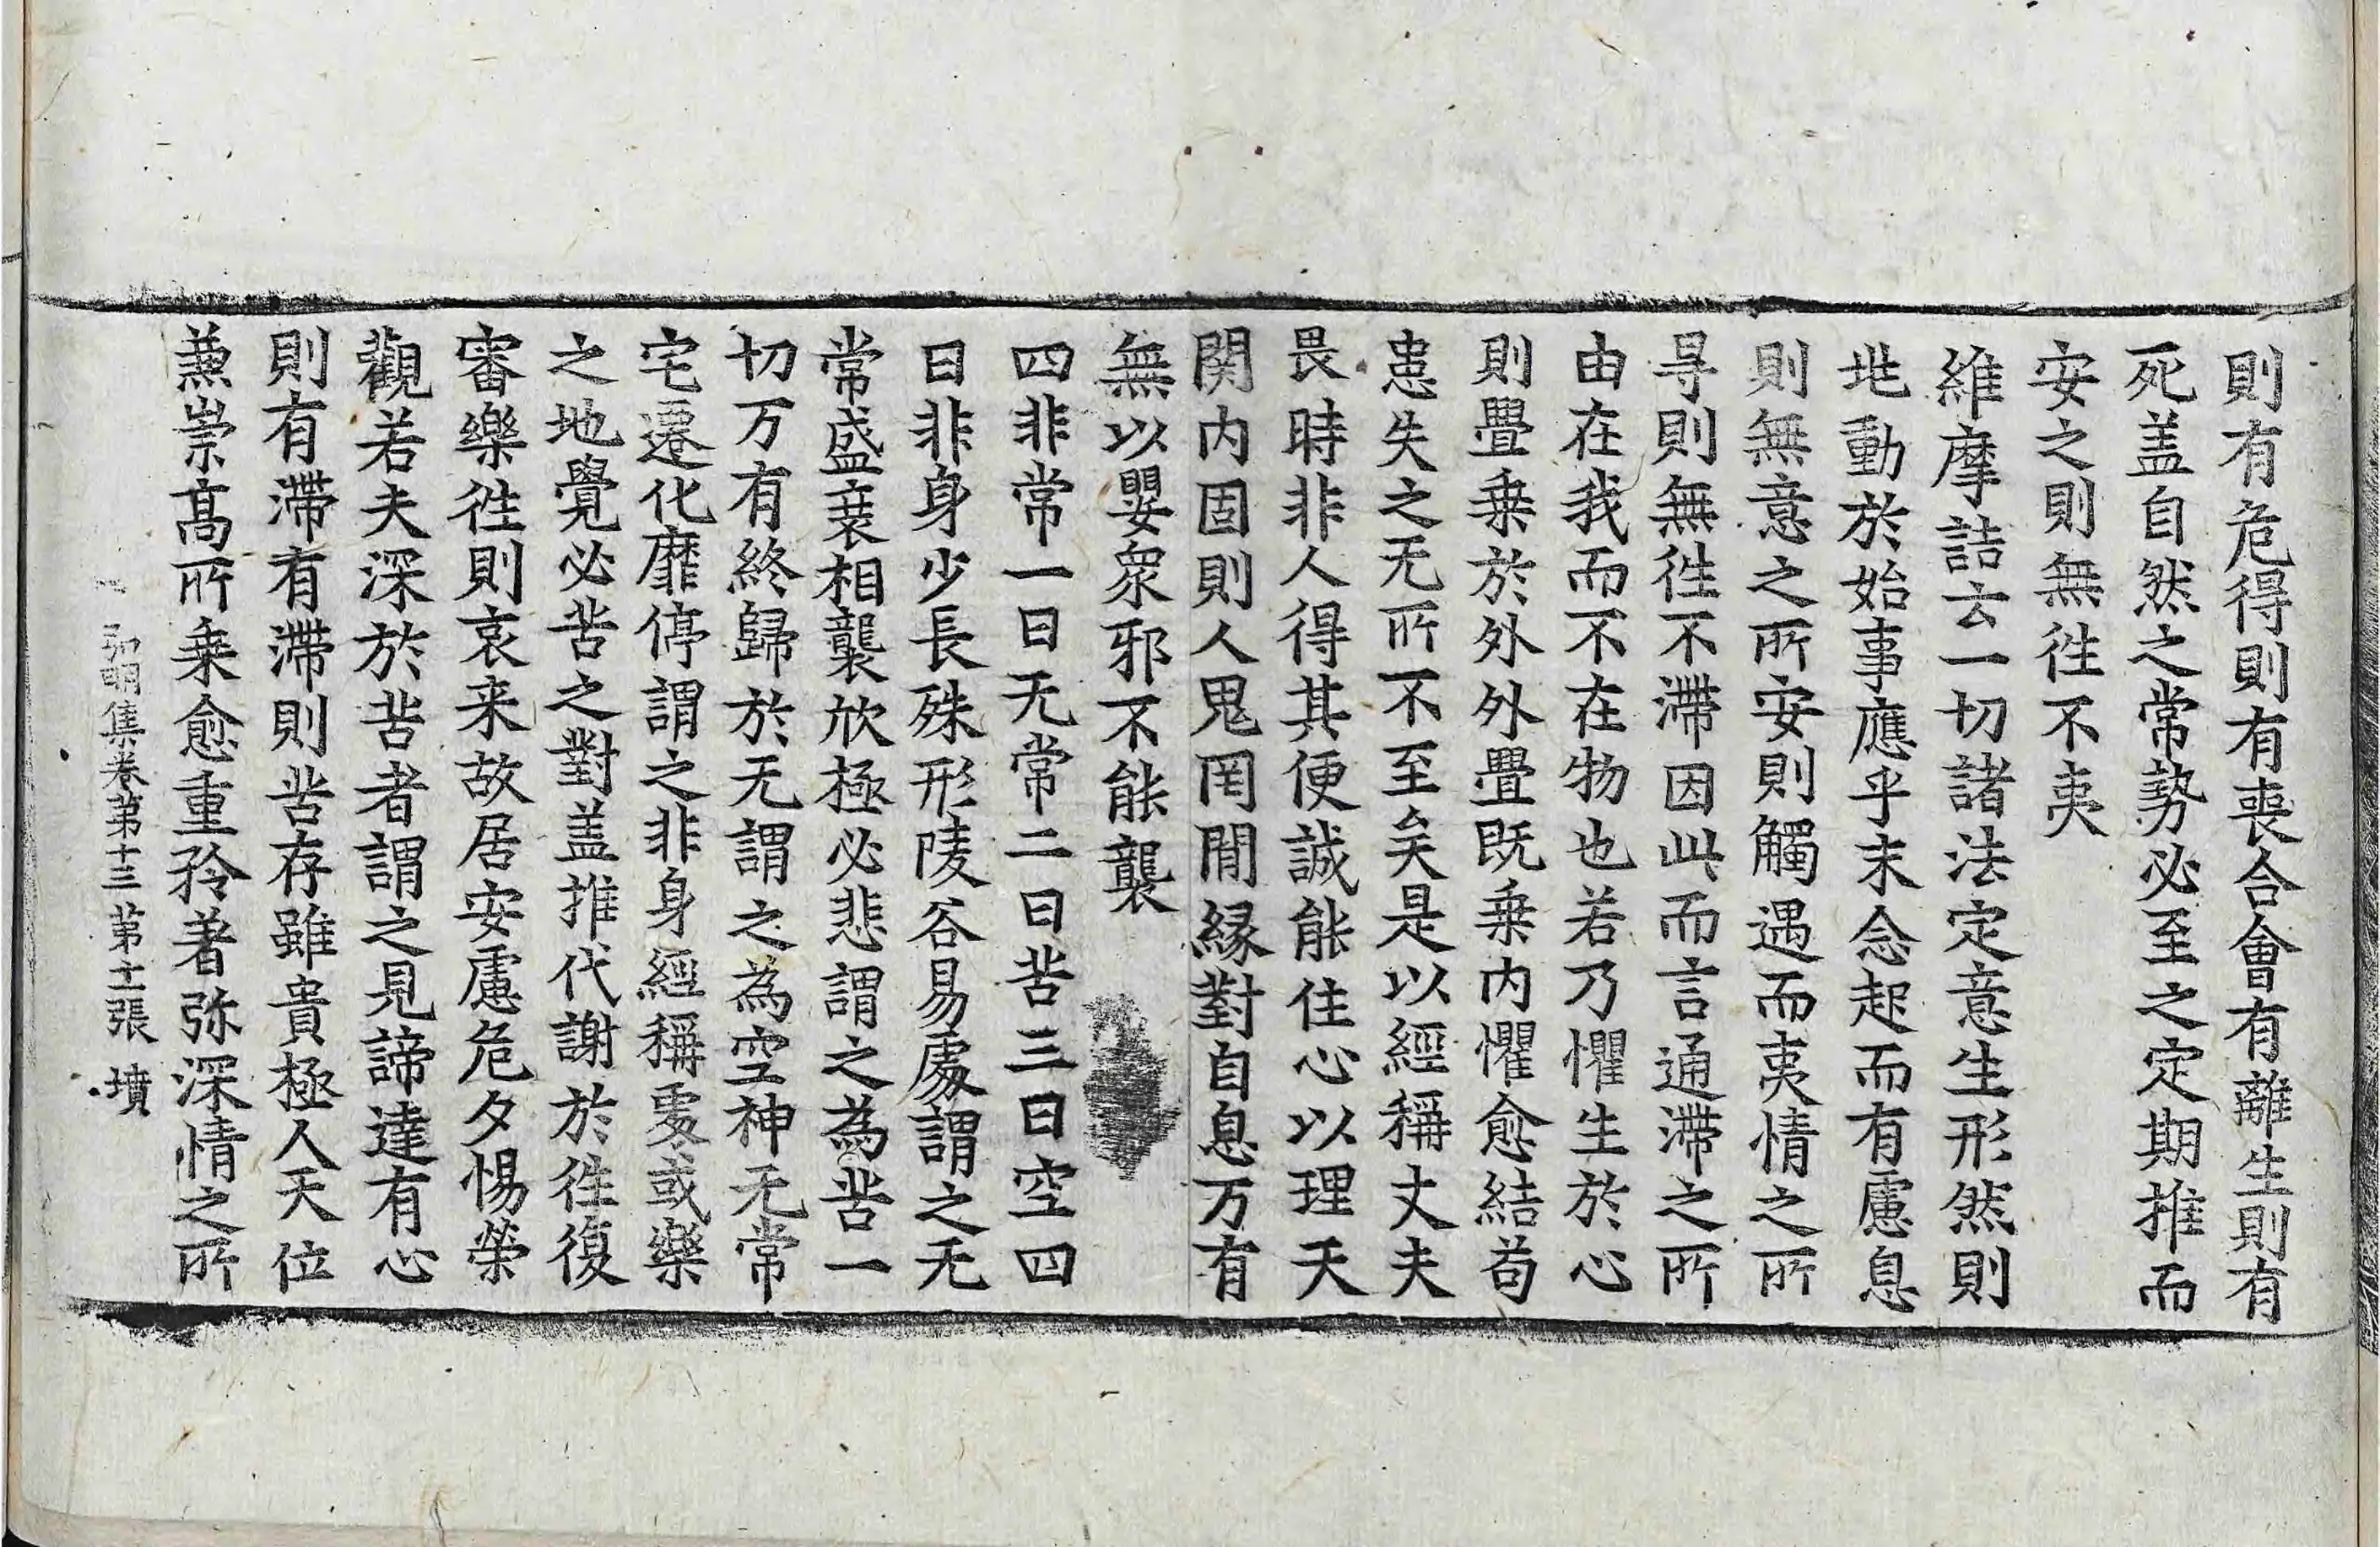 則有危得則有喪合會有離生則有
死盖自然之常勢必至之定期推而
安之則無徃不夷
維摩詰云一切諸法定意生形然則
兆動於始事應乎末念起而有慮息
則無意之所安則觸遇而夷情之所
㝵則無徃不滯因此而言通滯之所
由在我而不在物也若乃懼生於心
則疊乗於外外疊既乗内懼愈結苟
患失之无所不至矣是以經稱丈夫
畏時非人得其便誠能住心以理天
関内固則人鬼罔閒緣對自息万有
無以嬰衆邪不能襲
四非常一曰无常二曰苦三曰空四
曰非身少長殊形陵谷易處謂之无
常盛衰相襲欣極必悲謂之為苦一
切万有終歸於无謂之為空神无常
宅遷化靡停謂之非身經稱處或樂
之地覺必苦之對盖推代謝於徃復
審樂徃則哀来故居安慮危夕惕榮
觀若夫深於苦者謂之見諦達有心
則有滯有滯則苦存雖貴極人天位
兼崇髙所乗愈重矜著弥深情之所
弘明集卷第十三 第十一張 墳